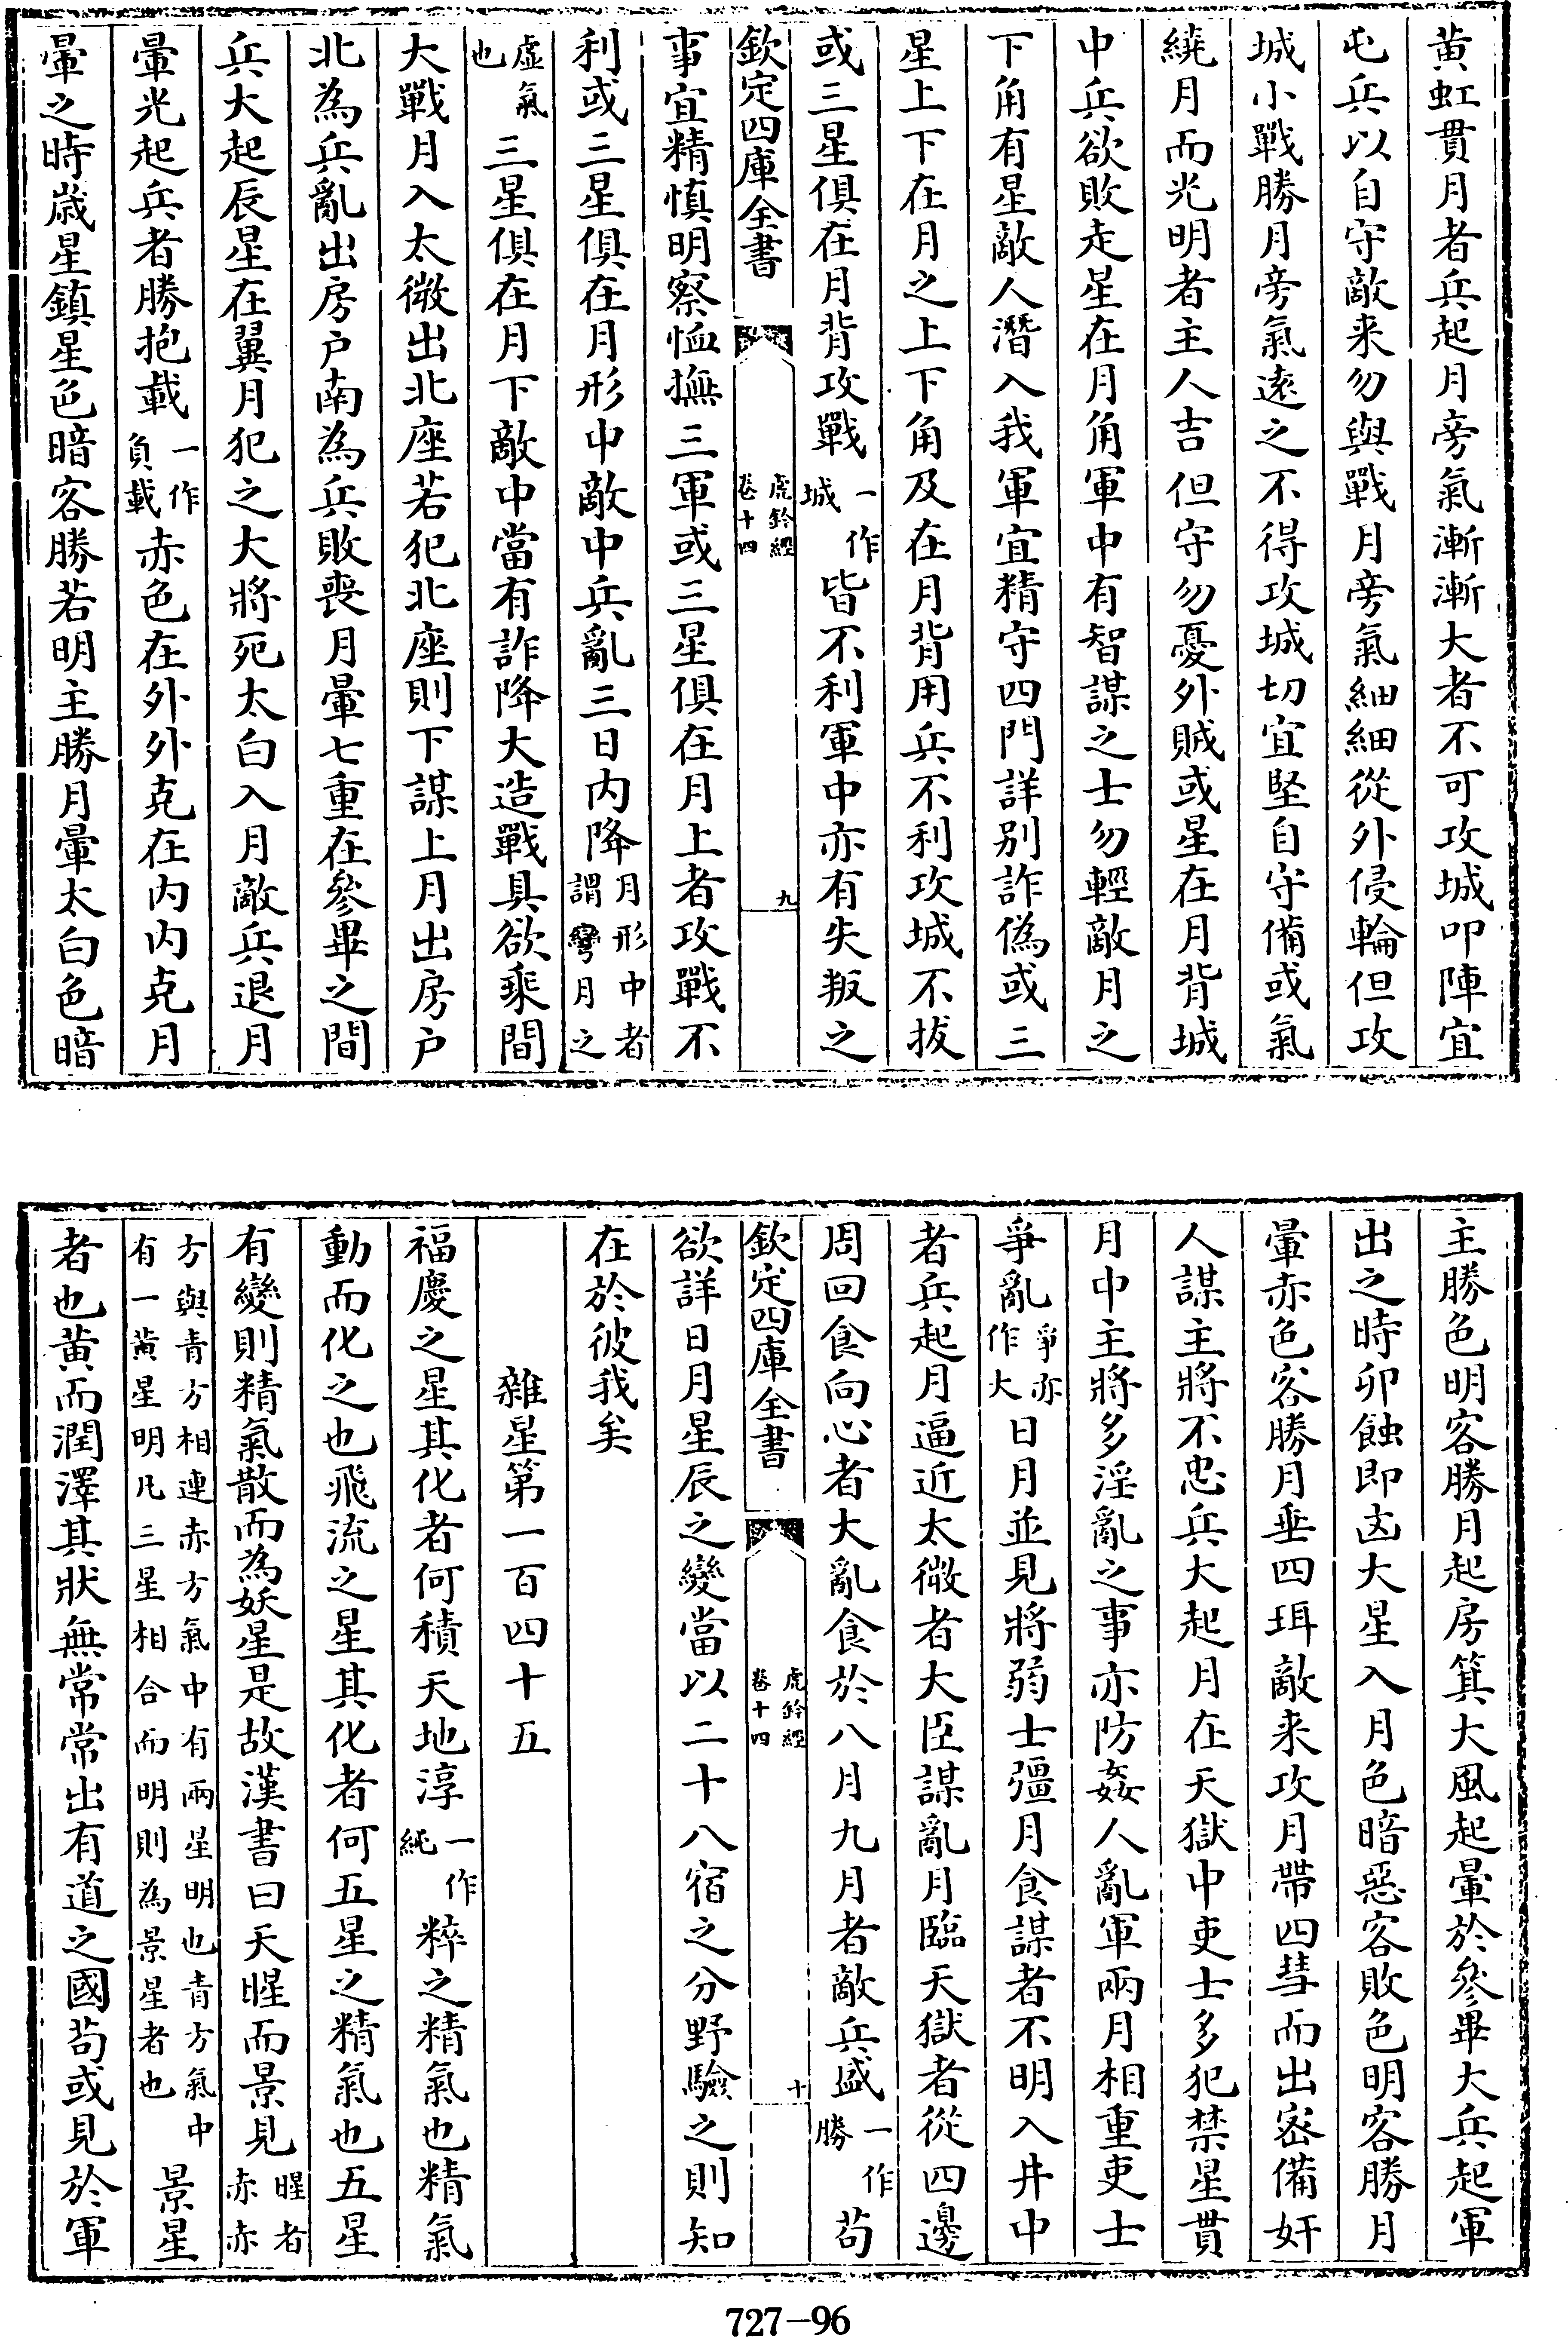 黄虹貫月者兵起月旁氣漸漸大者不可攻城叩陣宜
屯兵以自守敵来勿與戰月旁氣細細從外侵輪但攻
城小戰勝月旁氣逺之不得攻城切宜堅自守備或氣
繞月而光明者主人吉但守勿憂外賊或星在月背城
中兵欲敗走星在月角軍中有智謀之士勿輕敵月之
下角有星敵人潛入我軍宜精守四門詳别詐偽或三
星上下在月之上下角及在月背用兵不利攻城不拔
或三星俱在月背攻戰一作城皆不利軍中亦有失叛之
欽定四庫全書
虎鈐經
卷十四
九
事宜精慎明察恤撫三軍或三星俱在月上者攻戰不
利或三星俱在月形中敵中兵亂三日内降月形中者謂彎月之
虚氣也三星俱在月下敵中當有詐降大造戰具欲乘間
大戰月入太微出北座若犯北座則下謀上月出房户
北為兵亂出房户南為兵敗喪月暈七重在參畢之間
兵大起辰星在翼月犯之大將死太白入月敵兵退月
暈光起兵者勝抱載一作負載赤色在外外克在内内克月
暈之時歳星鎮星色暗客勝若明主勝月暈太白色暗
主勝色明客勝月起房箕大風起暈於參畢大兵起軍
出之時卯蝕即凶大星入月色暗惡客敗色明客勝月
暈赤色客勝月垂四珥敵来攻月帶四彗而出宻備奸
人謀主將不忠兵大起月在天獄中吏士多犯禁星貫
月中主將多淫亂之事亦防姦人亂軍兩月相重吏士
爭亂爭亦作大日月並見將弱士彊月食謀者不明入井中
者兵起月逼近太微者大臣謀亂月臨天獄者從四邊
周回食向心者大亂食於八月九月者敵兵盛一作勝茍
欽定四庫全書
虎鈐經
卷十四
十
欲詳日月星辰之變當以二十八宿之分野驗之則知
在於彼我矣
雜星第一百四十五
福慶之星其化者何積天地淳一作純粹之精氣也精氣
動而化之也飛流之星其化者何五星之精氣也五星
有變則精氣散而為妖星是故漢書曰天暒而景見暒者赤赤
方與青方相連赤方氣中有兩星明也青方氣中有一黄星明凡三星相合而明則為景星者也景星
者也黄而潤澤其狀無常常出有道之國茍或見於軍
727-96